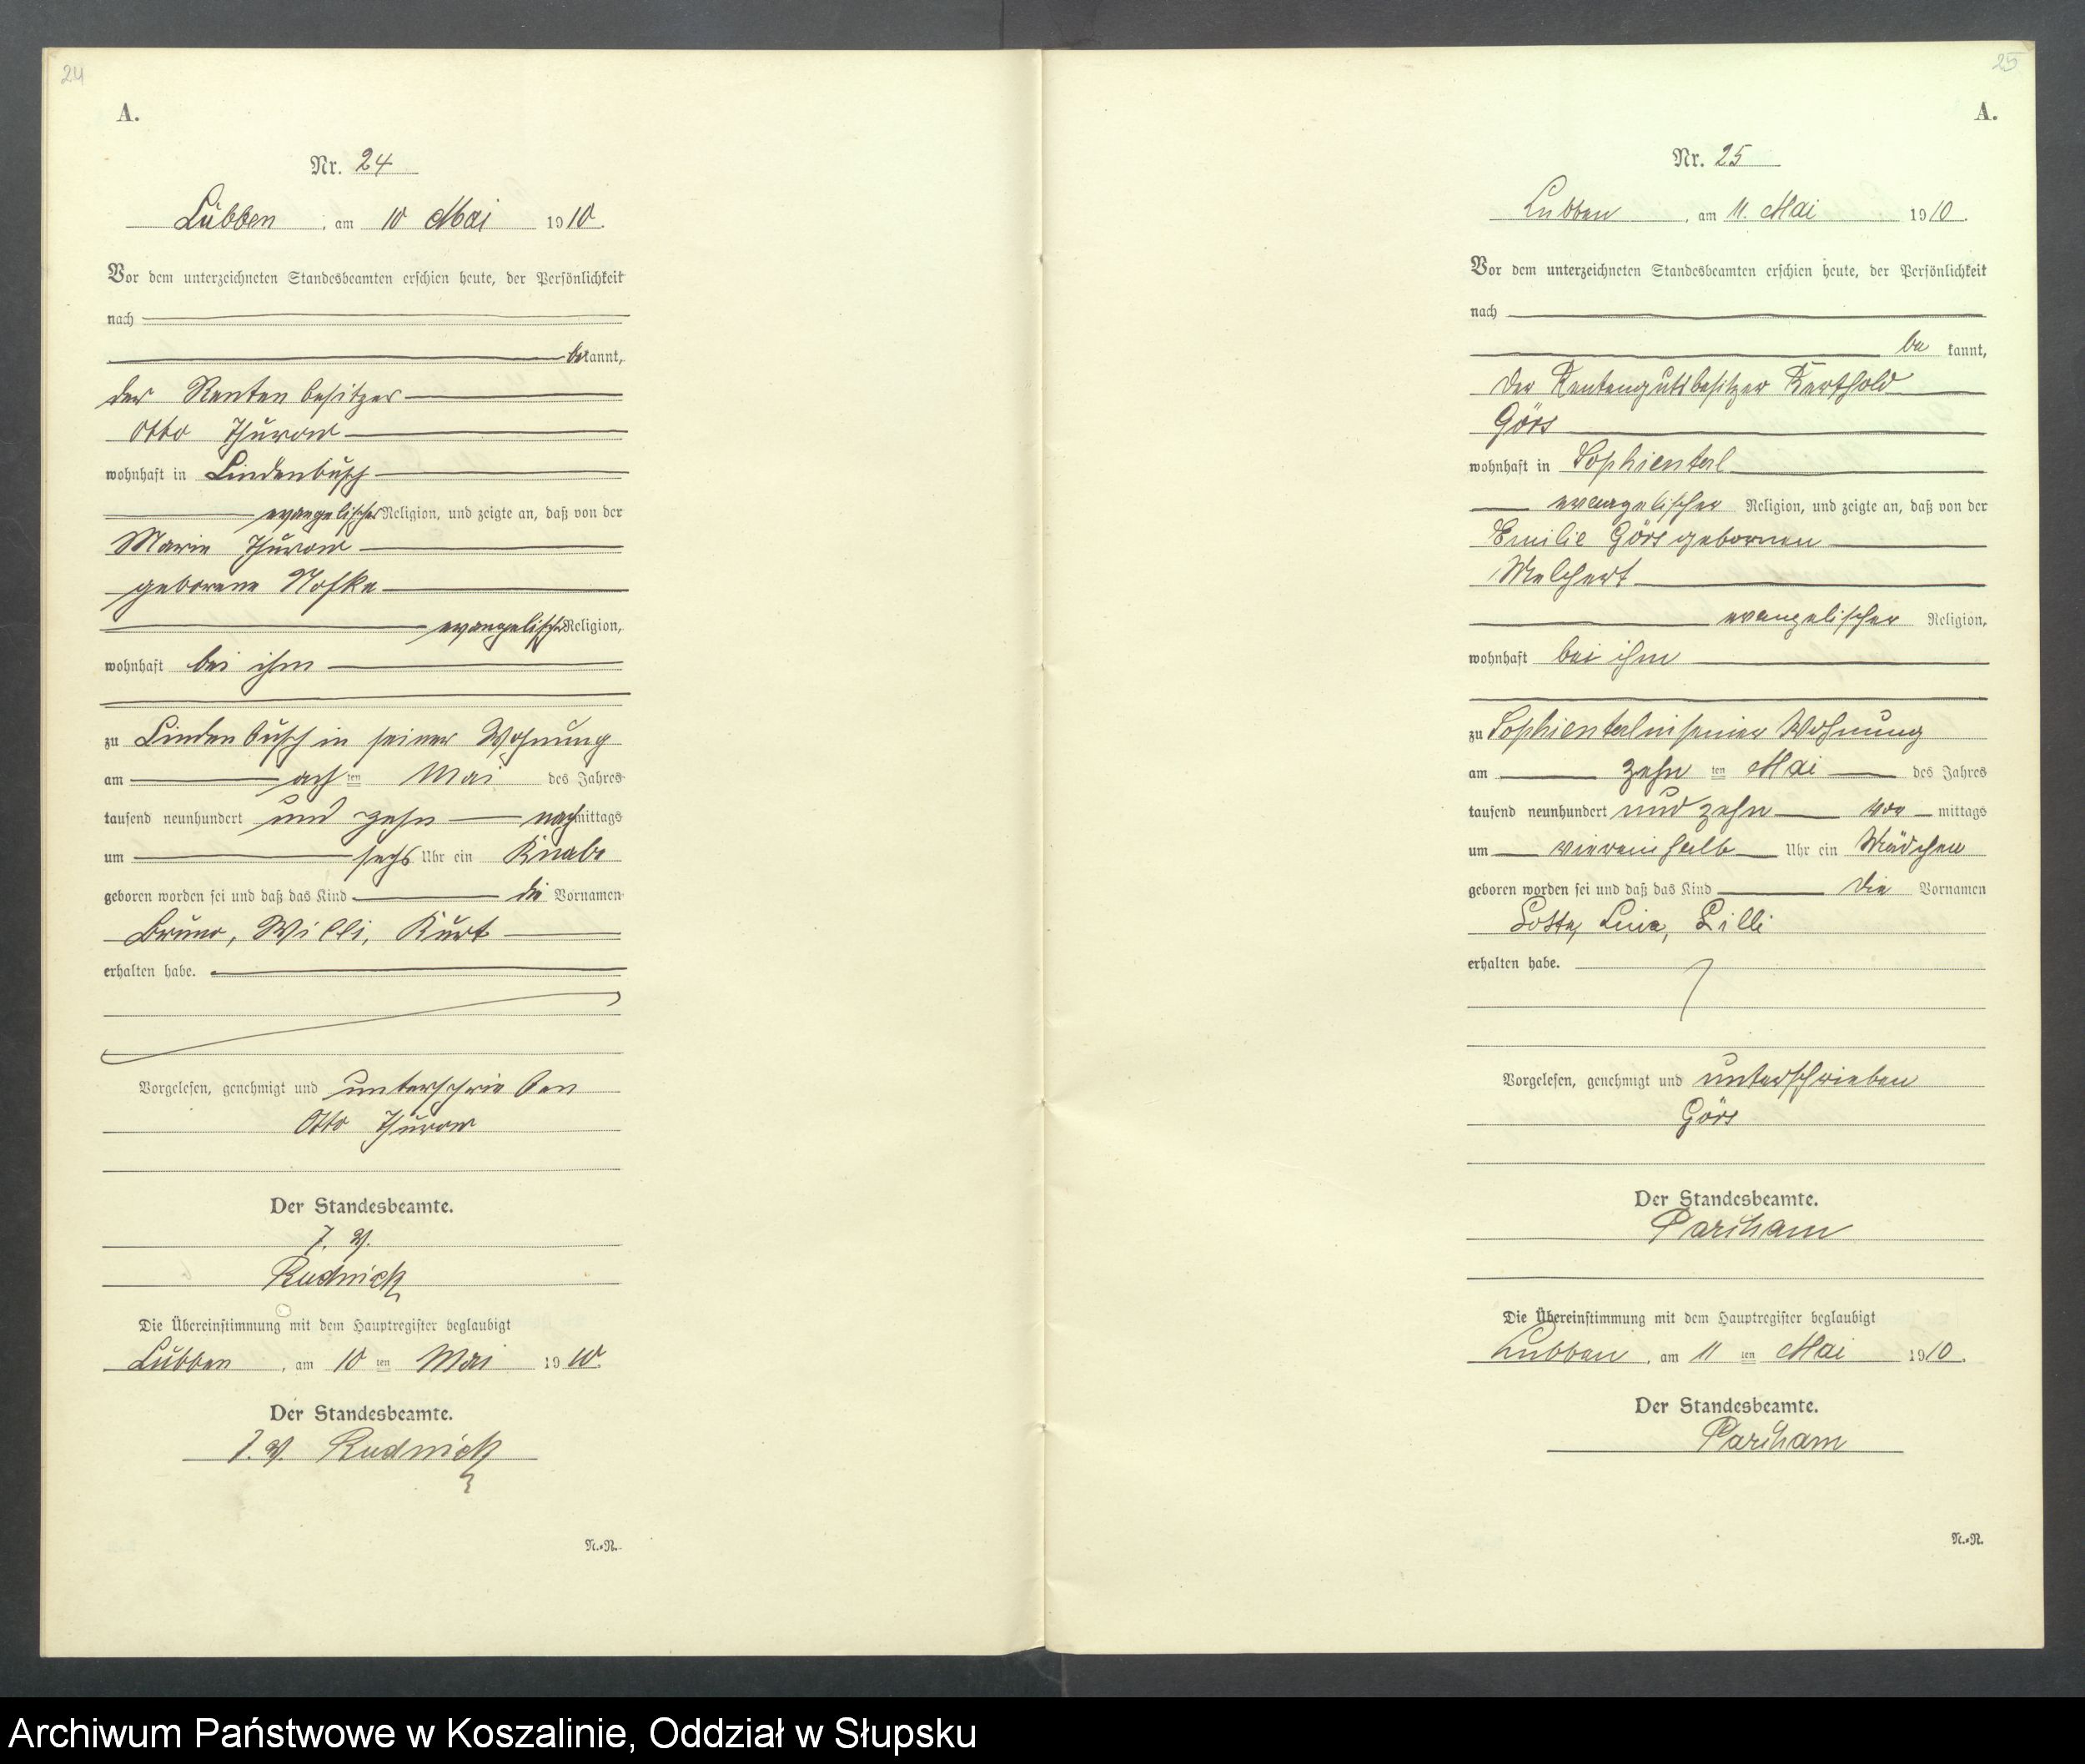 24
A.
Nr. 24
Lübben, am 10 Mai 1910.
Vor dem unterzeichneten Standesbeamten erschien heute, der Persönlichkeit
nach
bekannt,
der Rentenbesitzer
Otto Thurow
wohnhaft in Lindenbusch
evangelischer Religion, und zeigte an, daß von der
Marie Thurow
geborene Noffke
evangelischer Religion,
wohnhaft bei ihm
zu Lindenbusch in seiner Wohnung
am achten Mai des Jahres
tausend neunhundert und zehn nachmittags
um sechs Uhr ein Knabe
geboren worden sei und daß das Kind die Vornamen
Bruno, Willi, Kurt
erhalten habe.
Vorgelesen, genehmigt und unterschrieben
Otto Thurow
Der Standesbeamte.
J. V.
Rudnick
Die Übereinstimmung mit dem Hauptregister beglaubigt
Lübben, am 10 ten Mai 1910.
Der Standesbeamte.
J. V. Rudnick
N.=R.
25
A.
Nr. 25
Lubben, am 11. Mai 1910.
Vor dem unterzeichneten Standesbeamten erschien heute, der Persönlichkeit
nach
be kannt,
der Rentengutsbesitzer Berthold
Görs
wohnhaft in Sophiental
evangelischer Religion, und zeigte an, daß von der
Emilie Görs gebornen
Melchert
evangelischer Religion,
wohnhaft bei ihm
zu Sophiental in seiner Wohnung
am zehn ten Mai des Jahres
tausend neunhundert und zehn vor mittags
um viereinhalb Uhr ein Mädchen
geboren worden sei und daß das Kind die Vornamen
Lotte, Lilli
erhalten habe.
Vorgelesen, genehmigt und unterschrieben
Görs
Der Standesbeamte.
Die Übereinstimmung mit dem Hauptregister beglaubigt
Lubben, am 11 ten Mai 1910.
Der Standesbeamte.
N.=R.
Archiwum Państwowe w Koszalinie, Oddział w Słupsku